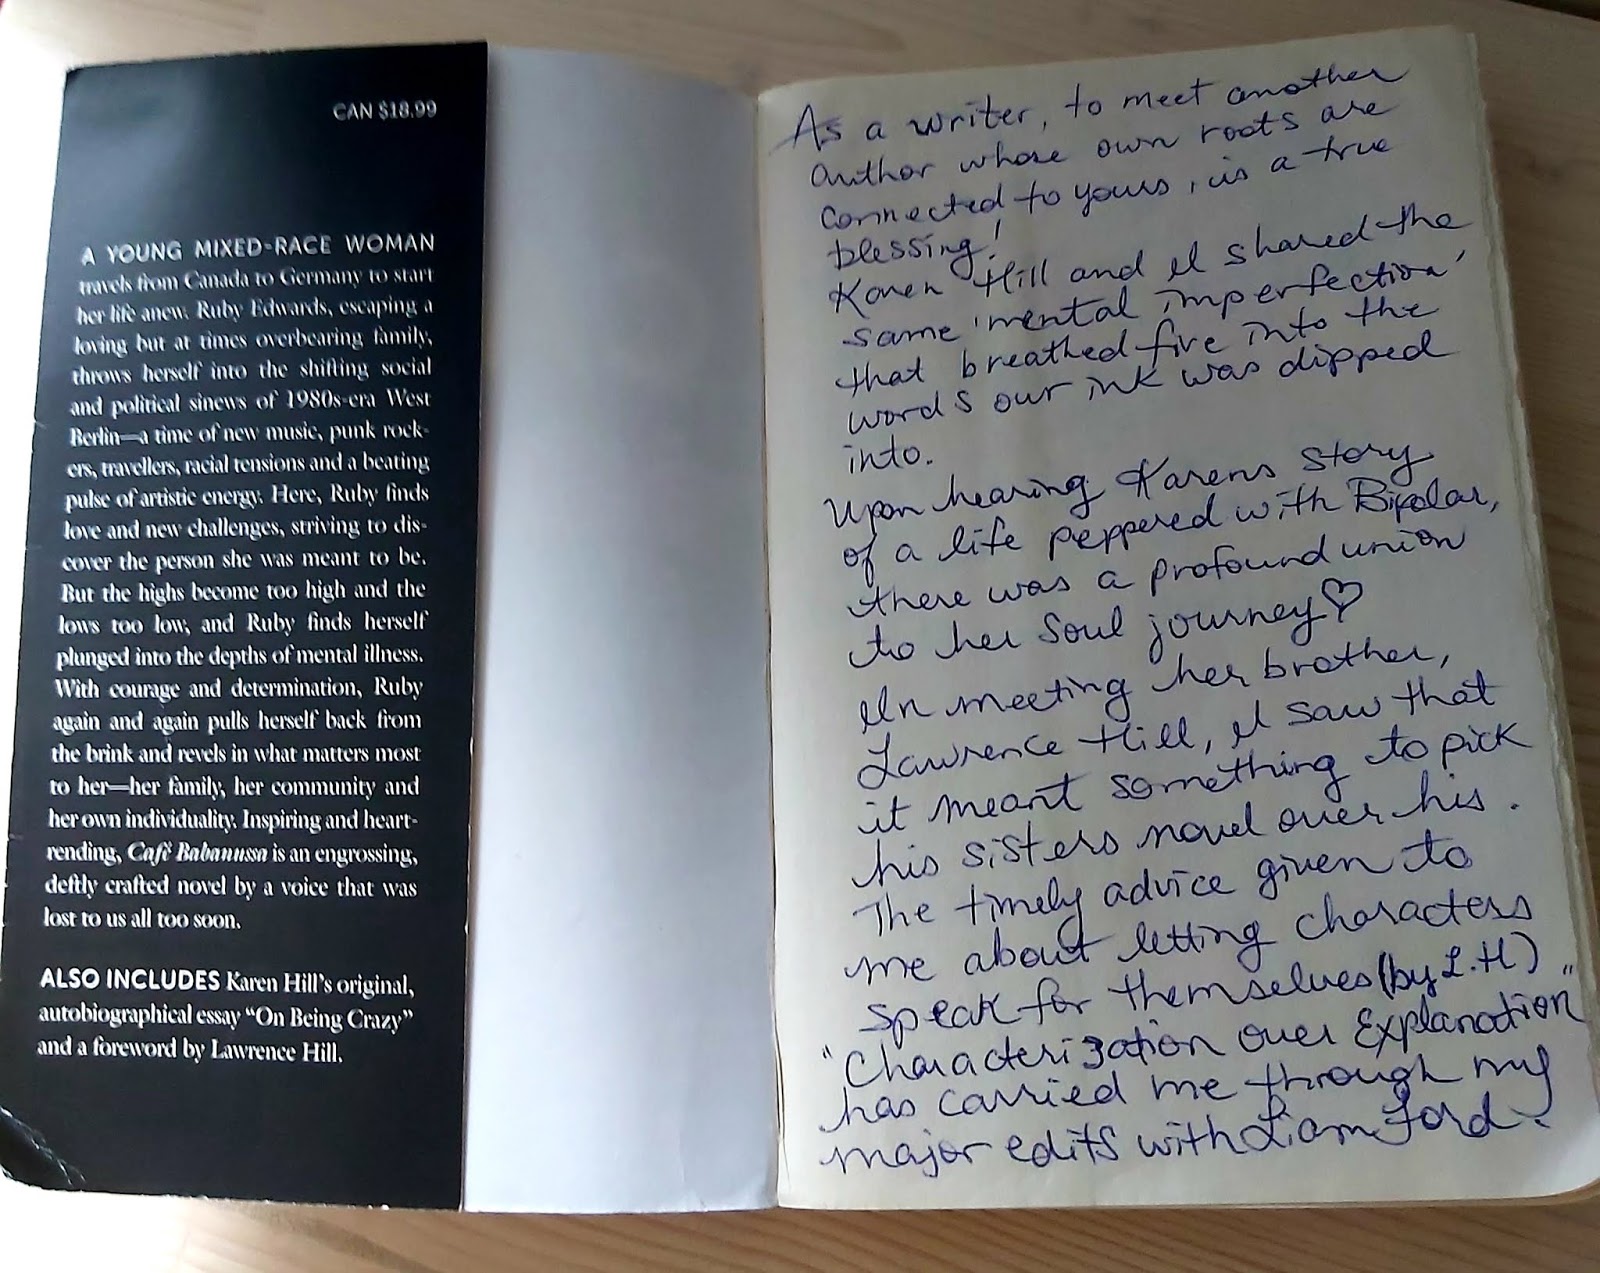 CAN $18.99
A YOUNG MIXED-RACE WOMAN
travels from Canada to Germany to start
her life anew. Ruby Edwards, escaping a
loving but at times overbearing family,
throws herself into the shifting social
and political sinews of 1980s-era West
Berlin—a time of new music, punk rock-
ers, travellers, racial tensions and a beating
pulse of artistic energy. Here, Ruby finds
love and new challenges, striving to dis-
cover the person she was meant to be.
But the highs become too high and the
lows too low, and Ruby finds herself
plunged into the depths of mental illness.
With courage and determination, Ruby
again and again pulls herself back from
the brink and revels in what matters most
to her—her family, her community and
her own individuality. Inspiring and heart-
rending, Café Babanussa is an engrossing,
deftly crafted novel by a voice that was
lost to us all too soon.
ALSO INCLUDES Karen Hill's original,
autobiographical essay "On Being Crazy"
and a foreword by Lawrence Hill.
As a writer, to meet another
author whose own roots are
connected to yours, is a true
blessing!
Karen Hill and I shared the
same 'mental imperfection'
that breathed fire into the
words our ink was dipped
into.
Upon hearing Karens story
of a life peppered with Bipolar,
there was a profound union
to her soul journey♡
In meeting her brother,
Lawrence Hill, I saw that
it meant something to pick
his sisters novel over his.
The timely advice given to
me about letting characters
speak for themselves (by L.H)
"Characterization over Explanation"
has carried me through my
major edits with Liam Ford.